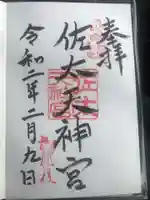 奉拝
佐太天神宮
令和二年二月九日